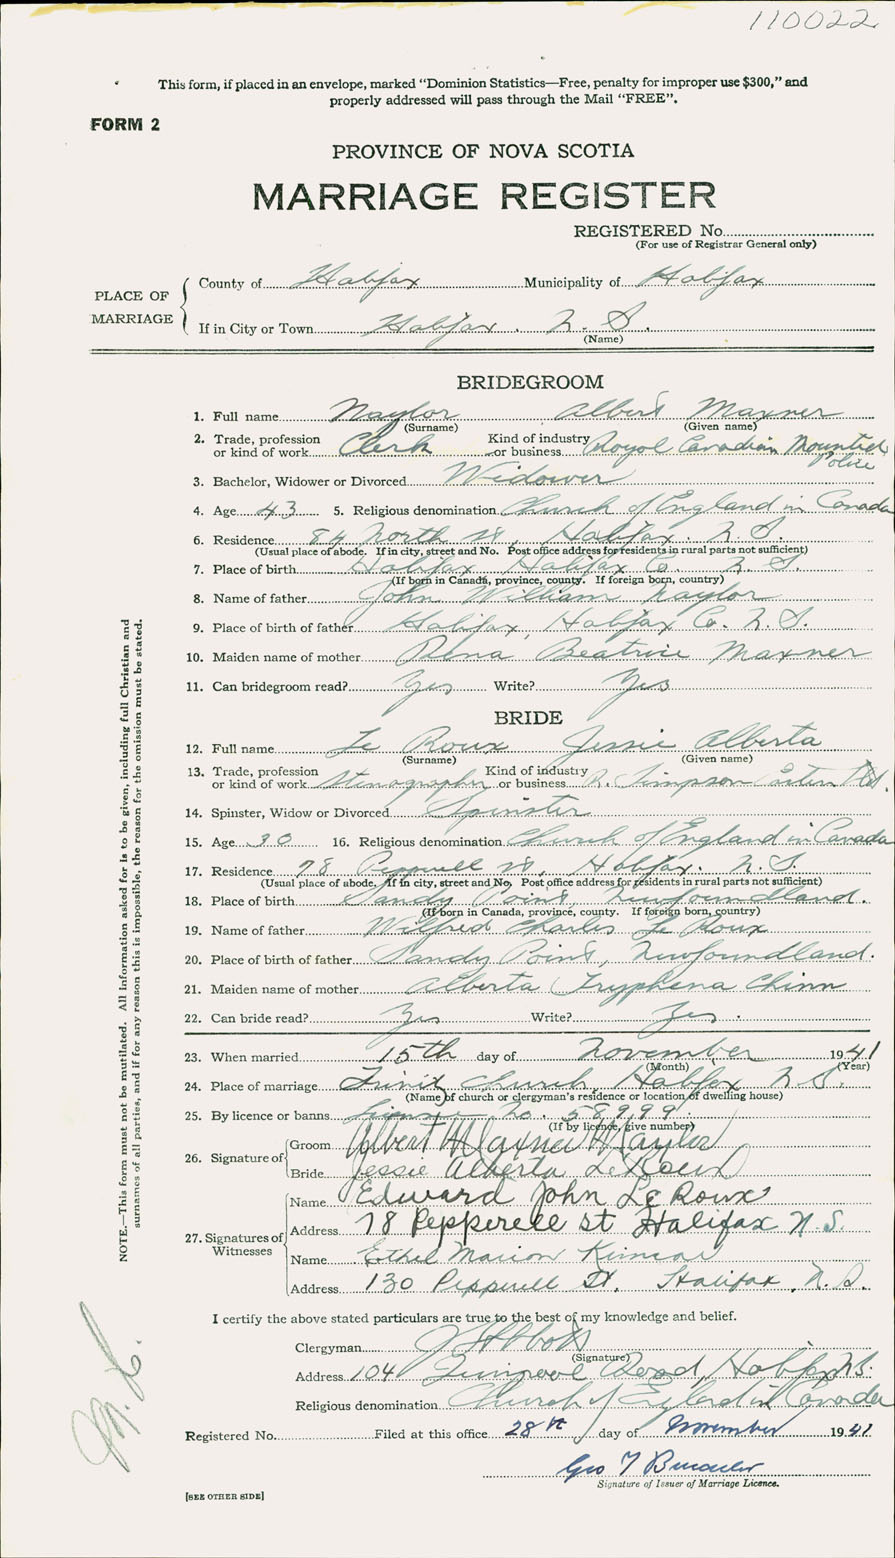 110022
This form, if placed in an envelope, marked “Dominion Statistics—Free, penalty for improper use $300,” and
properly addressed will pass through the Mail “FREE”.
FORM 2
PROVINCE OF NOVA SCOTIA
MARRIAGE REGISTER
REGISTERED No.
(For use of Registrar General only)
PLACE OF MARRIAGE
County of Halifax Municipality of Halifax
If in City or Town Halifax. N. S.
(Name)
BRIDEGROOM
1. Full name Naylor Albert Maxner
(Surname) (Given name)
2. Trade, profession or kind of work Clerk Kind of industry or business Royal Canadian Mounted Police
3. Bachelor, Widower or Divorced Widower
4. Age 43 5. Religious denomination Church of England in Canada
6. Residence 84 North St, Halifax. N. S.
(Usual place of abode. If in city, street and No. Post office address for residents in rural parts not sufficient)
7. Place of birth Halifax Halifax Co. N. S.
(If born in Canada, province, county. If foreign born, country)
8. Name of father John William Naylor
9. Place of birth of father Halifax, Halifax Co. N. S.
10. Maiden name of mother Rena Beatrice Maxner
11. Can bridegroom read? Yes Write? Yes
BRIDE
12. Full name Le Roux Jessie Alberta
(Surname) (Given name)
13. Trade, profession or kind of work Stenographer Kind of industry or business R. Simpson Eastern Ltd.
14. Spinster, Widow or Divorced Spinster
15. Age 30 16. Religious denomination Church of England in Canada
17. Residence 78 St, Halifax. N. S.
(Usual place of abode. If in city, street and No. Post office address for residents in rural parts not sufficient)
18. Place of birth Sandy Point, Newfoundland.
(If born in Canada, province, county. If foreign born, country)
19. Name of father Wilfred Charles Le Roux
20. Place of birth of father Sandy Point, Newfoundland.
21. Maiden name of mother Alberta Tryphena Chinn
22. Can bride read? Yes Write? Yes.
23. When married 15th day of November 1941
(Month) (Year)
24. Place of marriage Trinity Church, Halifax N. S.
(Name of church or clergyman's residence or location of dwelling house)
25. By licence or banns License No. 58999.
(If by licence, give number)
26. Signature of
Groom Albert Maxner Naylor
Bride Jessie Alberta LeRoux
27. Signatures of Witnesses
Name Edward John LeRoux
Address 78 Pepperell St Halifax N. S.
Name Ethel Marion
Address 130 Pepperell St. Halifax, N. S.
I certify the above stated particulars are true to the best of my knowledge and belief.
Clergyman
(Signature)
Address 104 Road, Halifax N.S.
Religious denomination Church of England in Canada
Registered No. Filed at this office 28th day of November 1941
Geo T
Signature of Issuer of Marriage Licence.
[SEE OTHER SIDE]
NOTE.—This form must not be mutilated. All information asked for is to be given, including full Christian and
surnames of all parties, and if for any reason this is impossible, the reason for the omission must be stated.